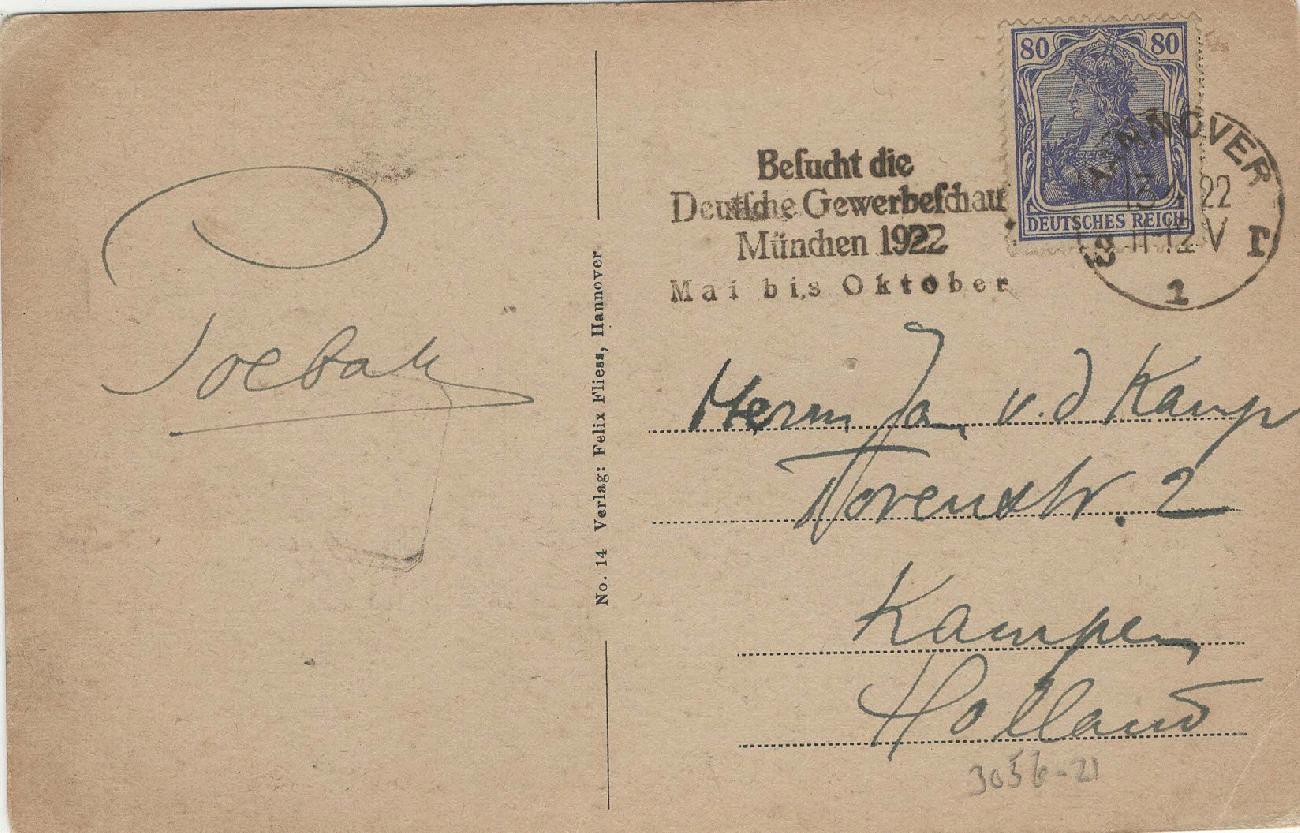 80 80
DEUTSCHES REICH
HANNOVER
13.4.22
11-12 V
1 r
1
Besucht die
Deutsche Gewerbeschau
München 1922
Mai bis Oktober
No. 14 Verlag: Felix Fliess, Hannover
Herrn Jan v.d Kamp
Torenstr. 2
Kampen
Holland
3056-21